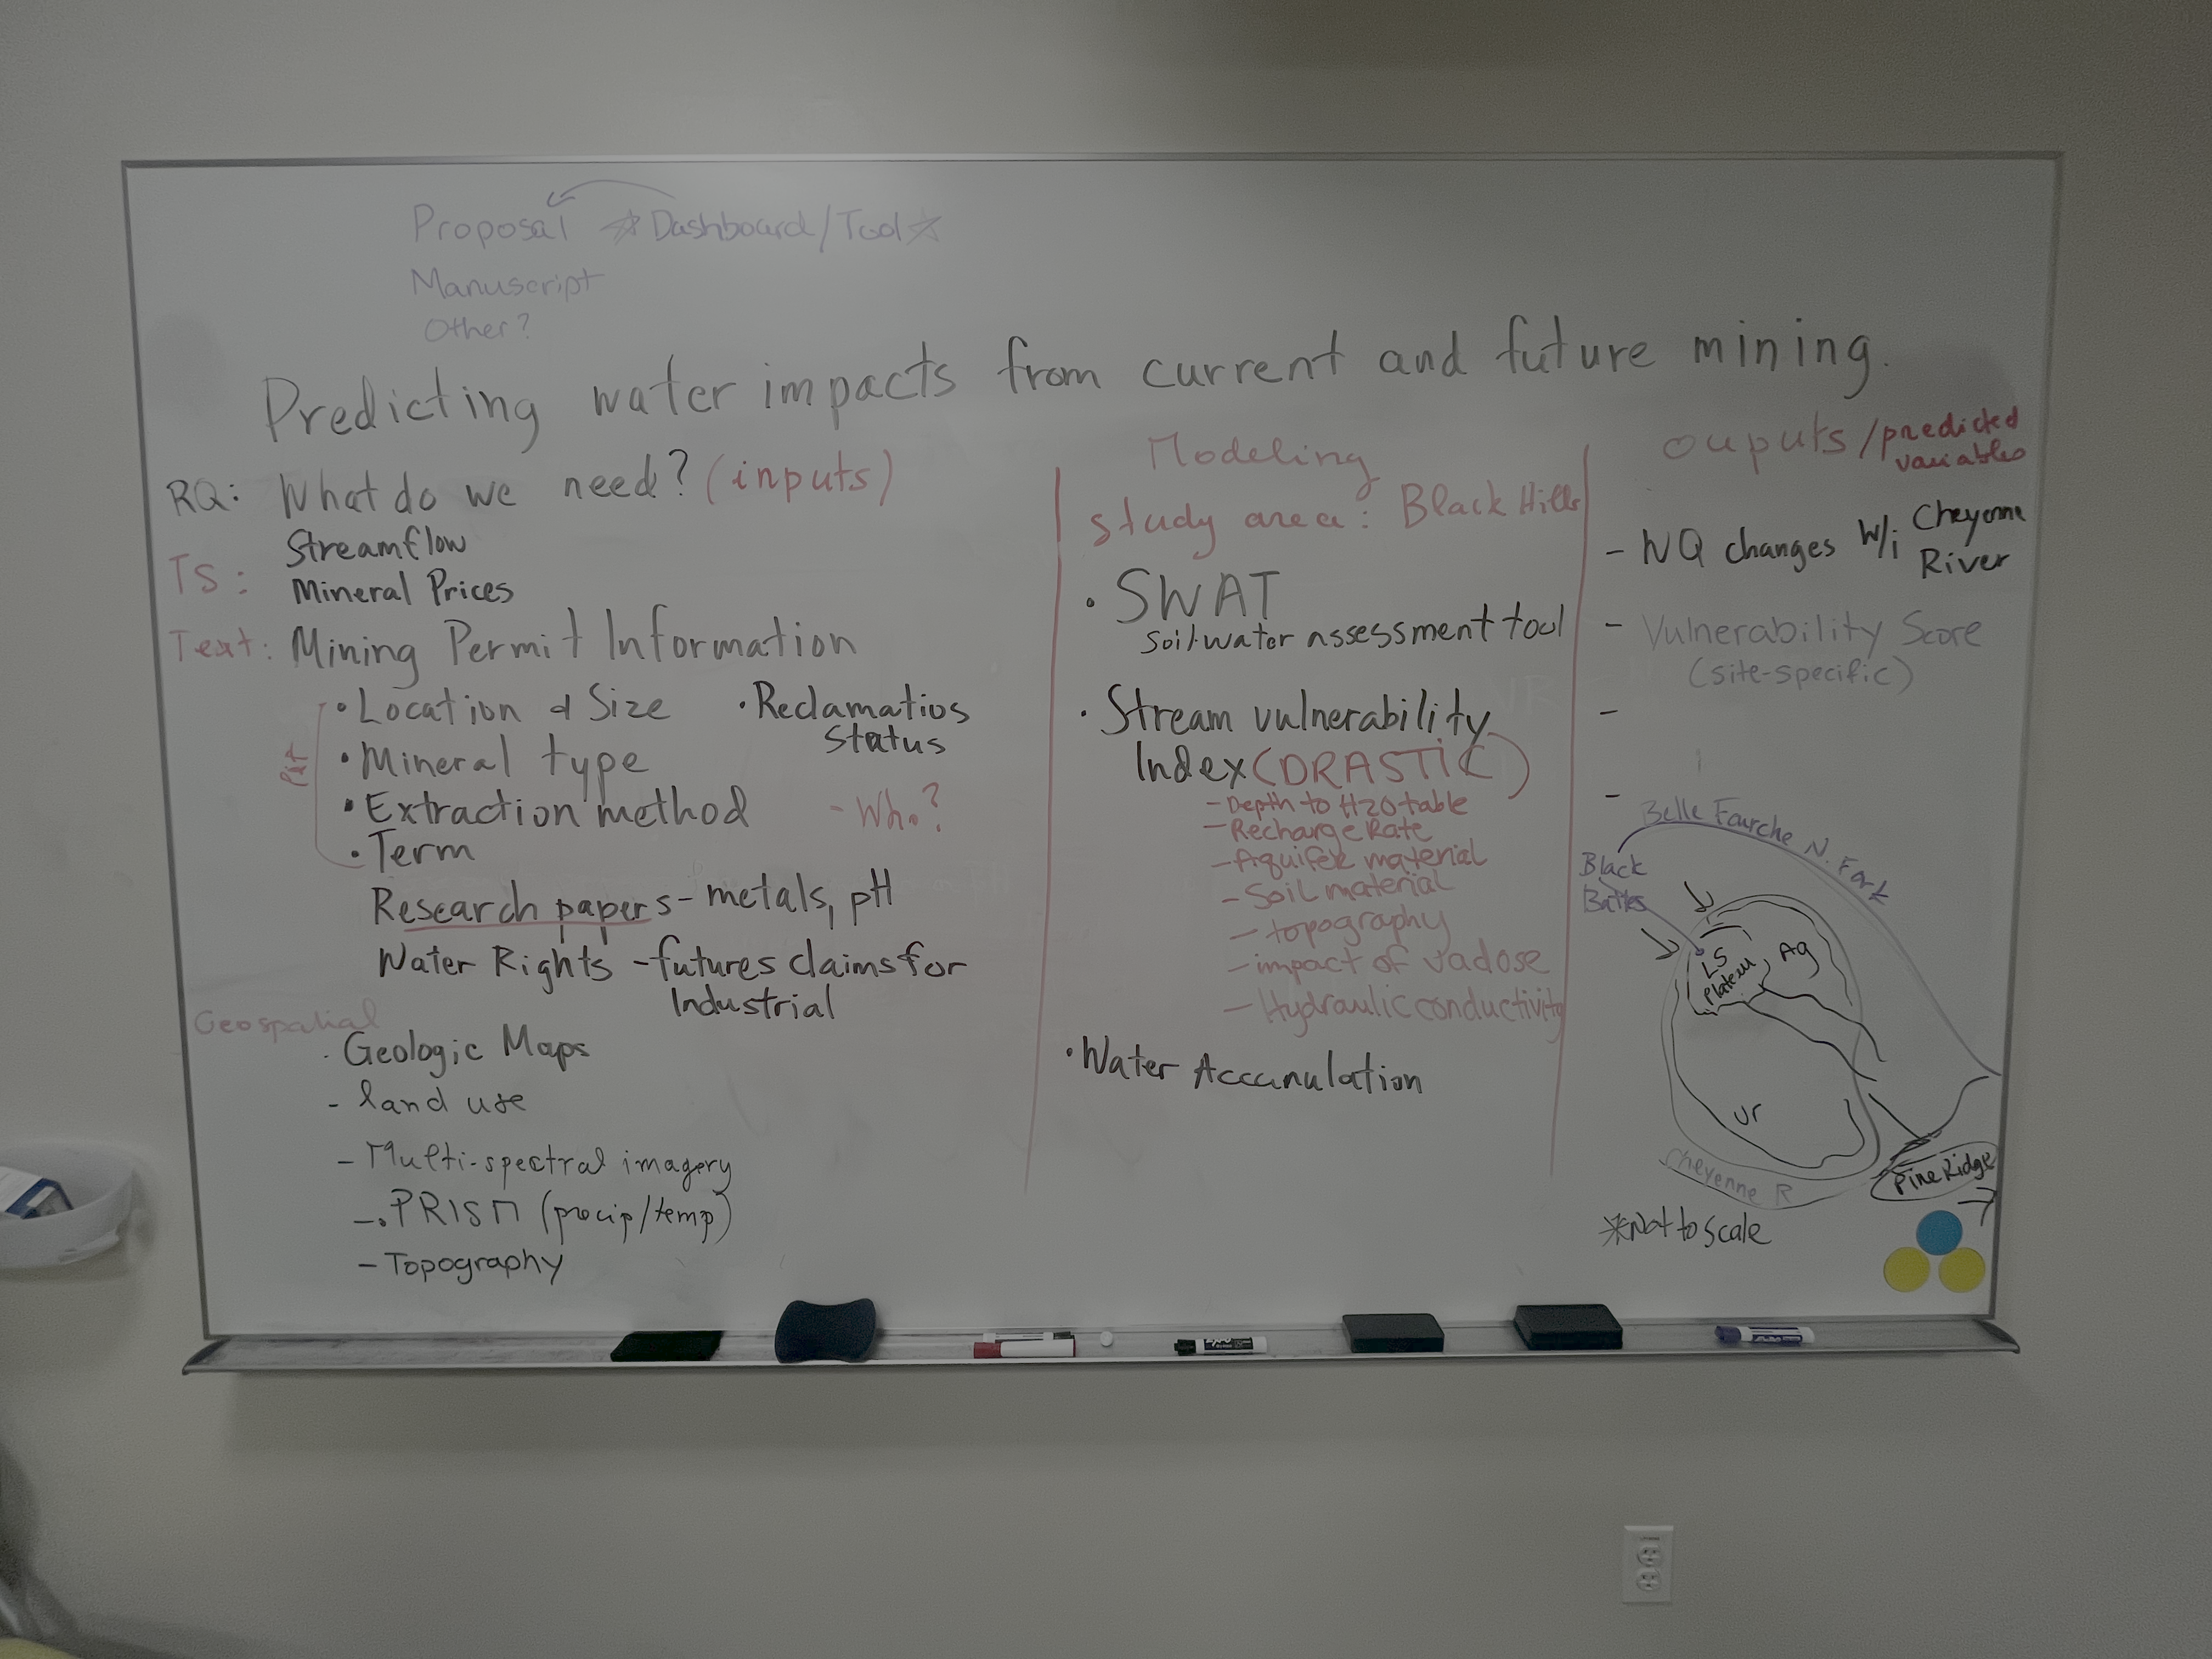 Proposal ☆Dashboard/Tool☆
Manuscript
Other?
Predicting water impacts from current and future mining.
RQ: What do we need? (inputs)
TS: Streamflow
Mineral Prices
Text: Mining Permit Information
• Location & Size • Reclamatios
Status
• Mineral type
• Extraction method - Who?
• Term
Research papers - metals, pH
Water Rights - futures claims for
Industrial
Geospatial
• Geologic Maps
- land use
- Multi-spectral imagery
-. PRISM (precip/temp)
- Topography
Modeling
Study area: Black Hills
• SWAT
Soil water assessment tool
• Stream vulnerability
Index (DRASTIC)
- Depth to H2O table
- Recharge Rate
- Aquifer material
- Soil material
- topography
- impact of vadose
- Hydraulic conductivity
• Water Accumulation
ouputs/predicted
variables
- WQ changes w/i Cheyenne
River
- Vulnerability Score
(site-specific)
-
-
Belle Fourche N. Fork
Black
Buttes
LS
Plateau
Ag
Ur
Cheyenne R
Pine Ridge
*Not to scale